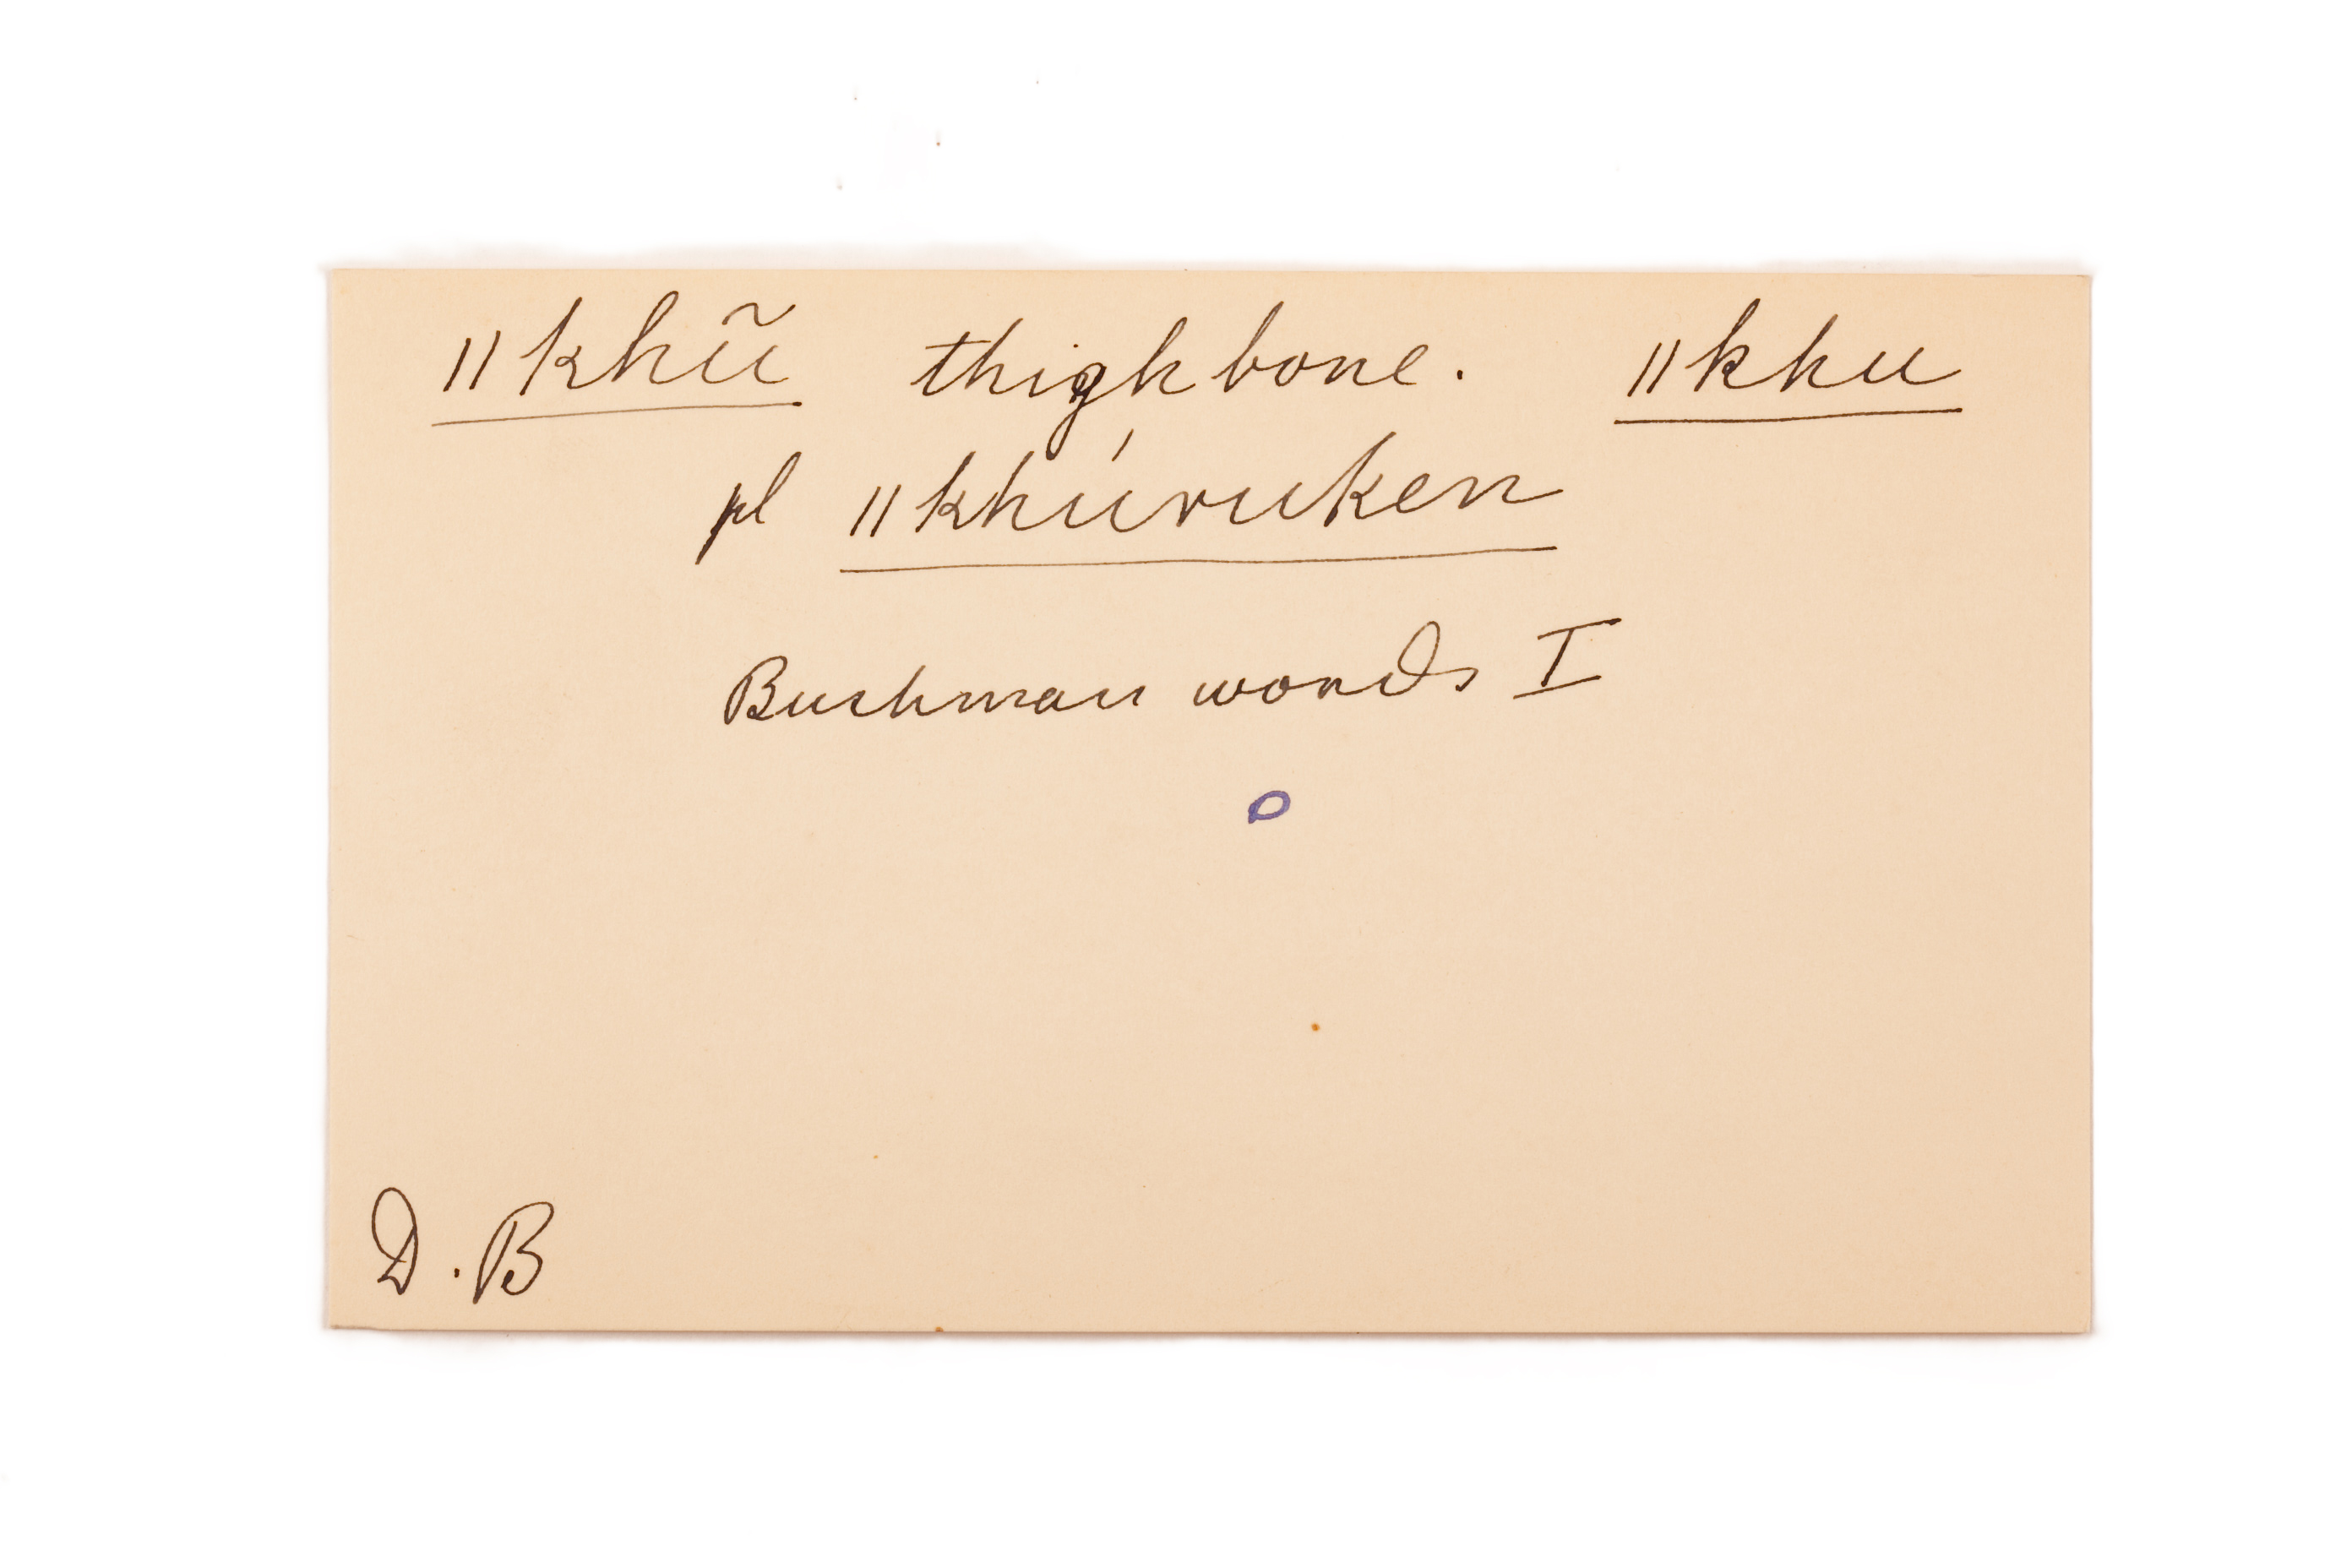 ǁkhũ thighbone. ǁkhu
pl ǁkhúruken
Bushman words I
o
D.B